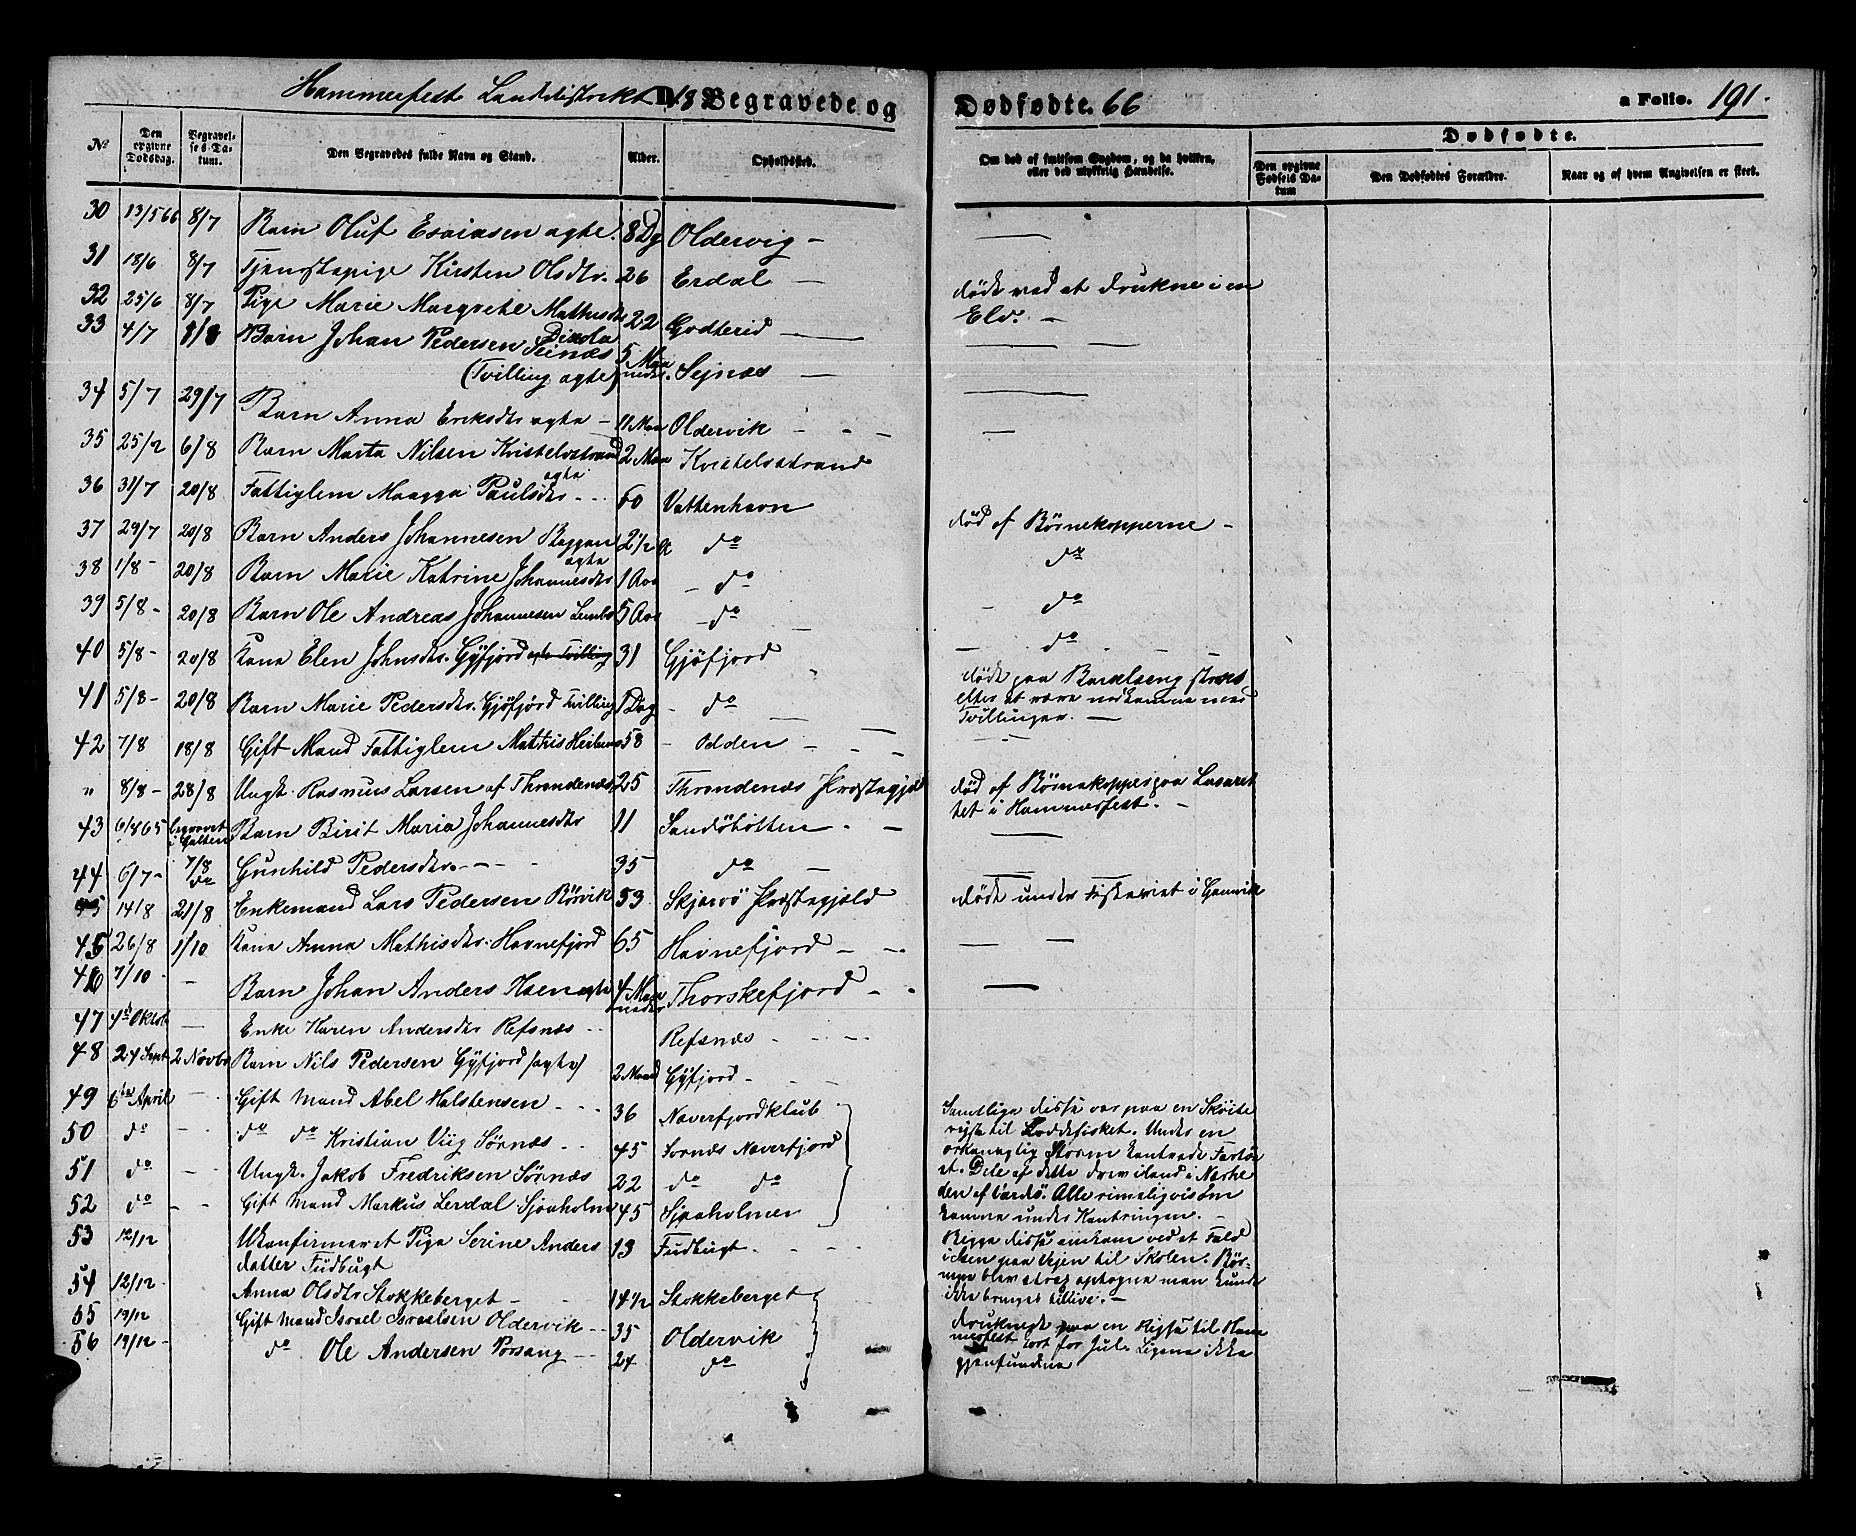 Hammerfest Landdistrikt 18 Begravede og Dødfødte. 66 a Folio. 191.
No
Den opgivne Dødsdag.
Begravelses Datum.
Den Begravedes fulde Navn og Stand.
Alder.
Opholdssted.
Om død af smitsom Sygdom, og da hvilken, eller ved ulykkelig Hændelse.
Dødfødte.
Den opgivne Fødsels Datum
Den Dødfødtes Forældre.
Naar og af hvem Angivelsen er skeet.
30 13/5 66 8/7 Barn Oluf Esaiasen ægte. 8 Dg Oldervig –
31 18/6 8/7 Tjenestepige Kirsten Olsdtr. 26 Erdal — døde ved at drukne i en Elv. –
32 25/6 8/7 Pige Marie Margrethe Mathisdtr 22
33 4/7 1/8 Barn Johan Pedersen Seinæs (Tvilling ægte) 5 Maaneder. Sejnæs —
34 5/7 29/7 Barn Anna Eriksdtr ægte – 11 Maa Oldervik – - –
35 25/2 6/8 Barn Marta Nilsen 2 Maa
ægte
36 31/7 20/8 Fattiglem Magga Paulsdtr - - - 60 Vattenhavn
37 29/7 20/8 Barn Anders Johannesen 2 1/2 do død af Børnekopperne –
ægte
38 1/8 - 20/8 Barn Marie Katrine Johannesdtr 1 Aar - do do
39 5/8 - 20/8 Barn Ole Andreas Johannesen 5 Aar - do - do
40 5/8 - 20/8 Kone Elen Johnsdtr. Gyfjord 31 Gjøfjord do
41 5/8 - 20/8 Barn Marie Pedersdtr. Gjøfjord Tvilling 1 Dag - do døde paa Barselseng strax efter at være nedkommet med Tvillinger. —
42 7/8 18/8 Gift Mand Fattiglem Mathis 58 - Odden
" 8/8 - 28/8 Ungk. Rasmus Larsen af Throndenæs 25 Throndenæs Præstegjæld død af Børnekopper paa Lasarettet i Hammerfest. –
43 6/8 65 begravet i Galten 7/8 Barn Birit Maria Johannesdtr 11 Sandøbotten . –
44 6/7 - do Gunhild Pedersdtr. - - - 35 do –
45 14/8 21/8 Enkemand Lars Pedersen Rørvik 53 Skjærvø Præstegjæld døde under Fiskeriet i Gamvik
45 26/8 1/10 Kone Anna Mathisdtr. Havnefjord 65 Havnefjord – –
46 7/10 - Barn Johan Anders ægte 4 Maaneder Thorskefjord – -
47 4de Oktob — Enke Karen Andersdtr Refsnæs - - Refsnæs
48 24 Sept 2 Novbr Barn Nils Pedersen Gyfjord (ægte) 2 Maand Gyfjord -
49 6te April - Gift Mand Abel Halstensen - - - 36 Naverfjordklub
50 do - do do Kristian Viig Sørnæs - - 45 Sørnæs Naverfjord
51 do - Ungk. Jakob Fredriksen Sørnæs 22 do do
52 do - Gift Mand Markus Lerdal Sjaaholmen 45 Sjaaholmen
Samtlige disse var paa en Skøite
reise til Loddefisket. Under en
orkanagtig Storm kantrede Fartøi
et. Dele af dette drev iland i Nærhe
den af Vardø. Alle rimeligvis om
komne under Kantringen. –
53 12/12 Ukonfirmeret Pige Serine Andersdatter Fudbugt 13 Fudbugt.
54 12/12 Anna Olsdtr Stokkeberget – 14 1/2 Stokkeberget
Begge disse omkom ved et Fald
i Søen paa Vejen til Skolen. Bør-
nene blev strax optagne men kunde
ikke bringes tillive. –
55 19/12 Gift Mand Israel Israelsen Oldervik – 35 Oldervik
56 19/12 do Ole Andersen Porsang – 24 do
druknet paa en Rejse til Ham
merfest kort før Jul. Ligene ikke
gjenfundne